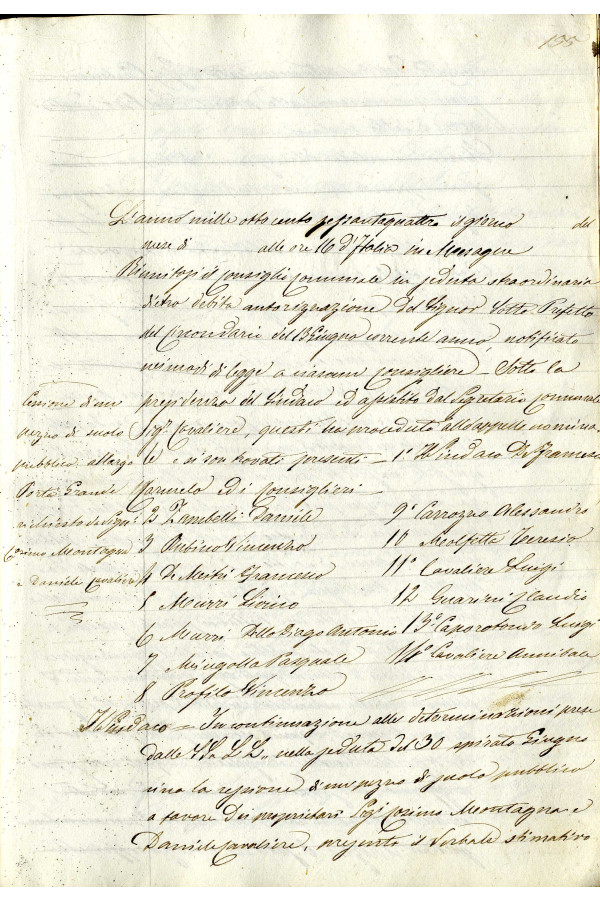 135
L'anno mille ottocento sessantaquattro il giorno del
mese di alle ore 16 d'Italia in Mesagne
Riunitosi il Consiglio comunale in seduta straordinaria
dietro debita autorizzazione del Signor Sotto Prefetto
del Circondario del 13 Giugno corrente anno, notificato
nei modi di legge a ciascun Consigliere – Sotto la
presidenza del Sindaco ed assistito dal Segretario comunale
Sigr Cavaliere, questi ha proceduto all'appello nomina
le e si son trovati presenti – 1° Il Sindaco De Francesco
Carmelo ed i Consiglieri
Cessione di un
pezzo di suolo
pubblico al largo
Porta Grande
richiesto da Sigri
Cosimo Montagna
e Daniele Cavaliere
2 Zambelli Daniele
3 Rubino Vincenzo
4 De Mestri Francesco
5 Murri
6 Murri Antonio
7 Mingolla Pasquale
8 Profilo Vincenzo
9° Carrozzo Alessandro
10 Molfetta Teresio
11° Cavaliere Luigi
12 Guarini Claudio
13° Caporotondo Luigi
14° Cavaliere Annibale
Il Sindaco = In continuazione alle determinazioni prese
dalle SS. LL., nella seduta del 30 spirato Giugno
circa la cessione di un pezzo di suolo pubblico
a favore dei proprietari Sigri Cosimo Montagna e
Daniele Cavaliere, presento il Verbale stimativo